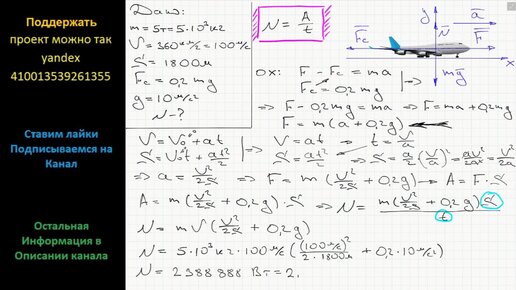 Поддержать
проект можно так
yandex
410013539261355
Ставим лайки
Подписываемся на
Канал
Остальная
Информация в
Описании канала
Дано:
m = 5т = 5·10³ кг
V = 360 км/ч = 100 м/с
S = 1800 м
Fc = 0,2 mg
g = 10 м/с²
N - ?
N = A/t
y
a
Fc
N
F
x
mg
ox: F - Fc = ma
Fc = 0,2 mg
=> F - 0,2mg = ma => F = ma + 0,2mg
F = m(a + 0,2g)
V = V₀ + at
V = at => t = V/a
S = V₀t + at²/2
S = at²/2 => S = a/2 (V/a)² = aV²/2a² = V²/2a
=> a = V²/2S => F = m(V²/2S + 0,2g) -> A = F·S
A = m(V²/2S + 0,2g)·S => N = m(V²/2S + 0,2g)S/t
N = mV(V²/2S + 0,2g)
N = 5·10³кг·100 м/с((100 м/с)²/2·1800м + 0,2·10 м/с²)
N = 2388888 Вт = 2,